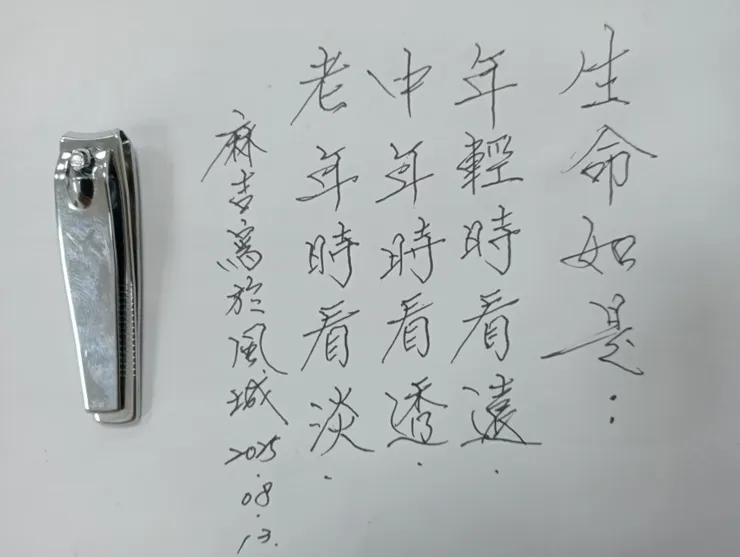 生命如是：
年輕時看遠.
中年時看透.
老年時看淡.
麻吉寫於風城 2025.08.13.